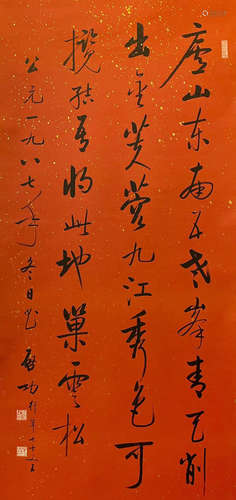 庐山东南五老峯青天削
出金芙蓉九江秀色可
揽结吾将此地巢云松
公元一九八七年冬日书
启功行年七十又五